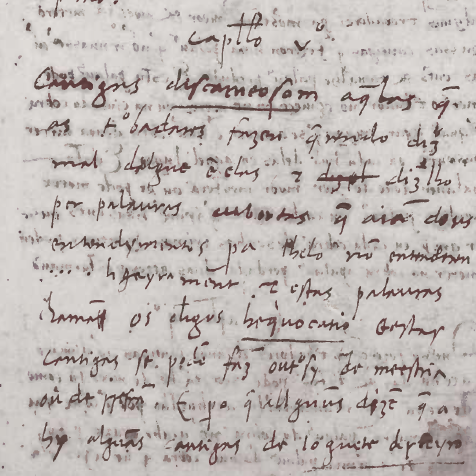 capitº vº
Cantigas discarneosom aq̄las q̄
as t°badores fazen q̄rrendo diz̄
mal dalgue ē elas z diz̄ lho
per palauras cubertas q̄ aiā dous
entendymentos pa lhelo nō entenderen
ligeyramente z estas palauras
chamā os clerigos hequocatio Gestas
cantigas se podē faz̄ outsy de meestria
ou de rrefrā E po q̄ alguūs dizē q̄ a
hy alguās cantigas de loguete derteyro